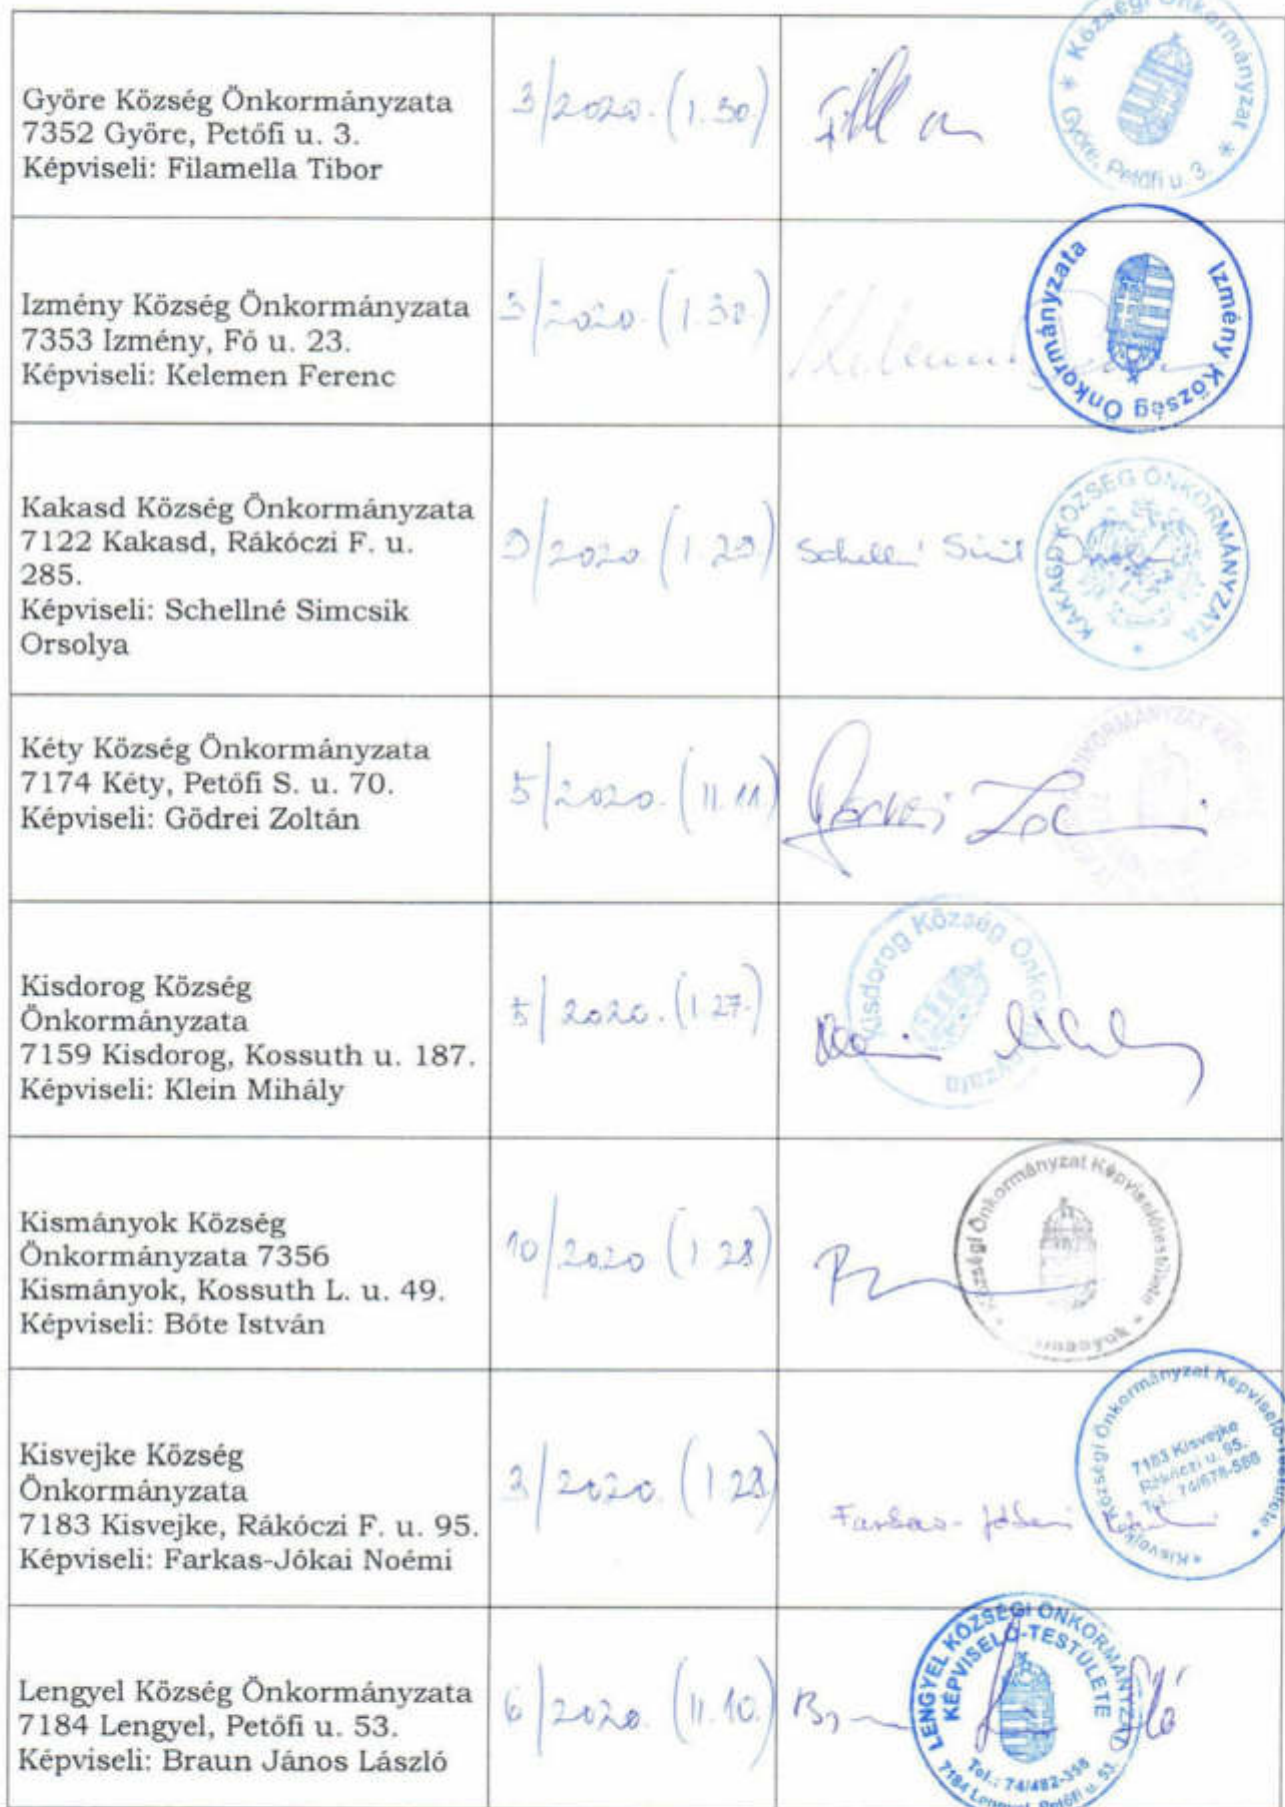 Györe Község Önkormányzata
7352 Györe, Petőfi u. 3.
Képviseli: Filamella Tibor
3/2020. (I. 30.)
Községi Önkormányzat
* Györe, Petőfi u. 3. *
Izmény Község Önkormányzata
7353 Izmény, Fő u. 23.
Képviseli: Kelemen Ferenc
3/2020. (I. 30.)
Izmény Község Önkormányzata
Kakasd Község Önkormányzata
7122 Kakasd, Rákóczi F. u.
285.
Képviseli: Schellné Simcsik
Orsolya
9/2020. (I. 29.)
KAKASD KÖZSÉG ÖNKORMÁNYZATA
Kéty Község Önkormányzata
7174 Kéty, Petőfi S. u. 70.
Képviseli: Gödrei Zoltán
5/2020. (II. 11.)
Kisdorog Község
Önkormányzata
7159 Kisdorog, Kossuth u. 187.
Képviseli: Klein Mihály
5/2020. (I. 27.)
Kisdorog Község Önkormányzata
Kismányok Község
Önkormányzata 7356
Kismányok, Kossuth L. u. 49.
Képviseli: Bőte István
10/2020 (I. 28)
Községi Önkormányzat Képviselőtestülete
Kisvejke Község
Önkormányzata
7183 Kisvejke, Rákóczi F. u. 95.
Képviseli: Farkas-Jókai Noémi
3/2020. (I. 28)
Farkas-Jókai
Községi Önkormányzat Képviselő-testülete
* Kisvejke *
7183 Kisvejke
Rákóczi u. 95.
Tel.: 74/678-586
Lengyel Község Önkormányzata
7184 Lengyel, Petőfi u. 53.
Képviseli: Braun János László
6/2020. (II. 10.)
LENGYEL KÖZSÉGI ÖNKORMÁNYZAT
KÉPVISELŐ-TESTÜLETE
Tel.: 74/482-356
7184 Lengyel, Petőfi u. 53.